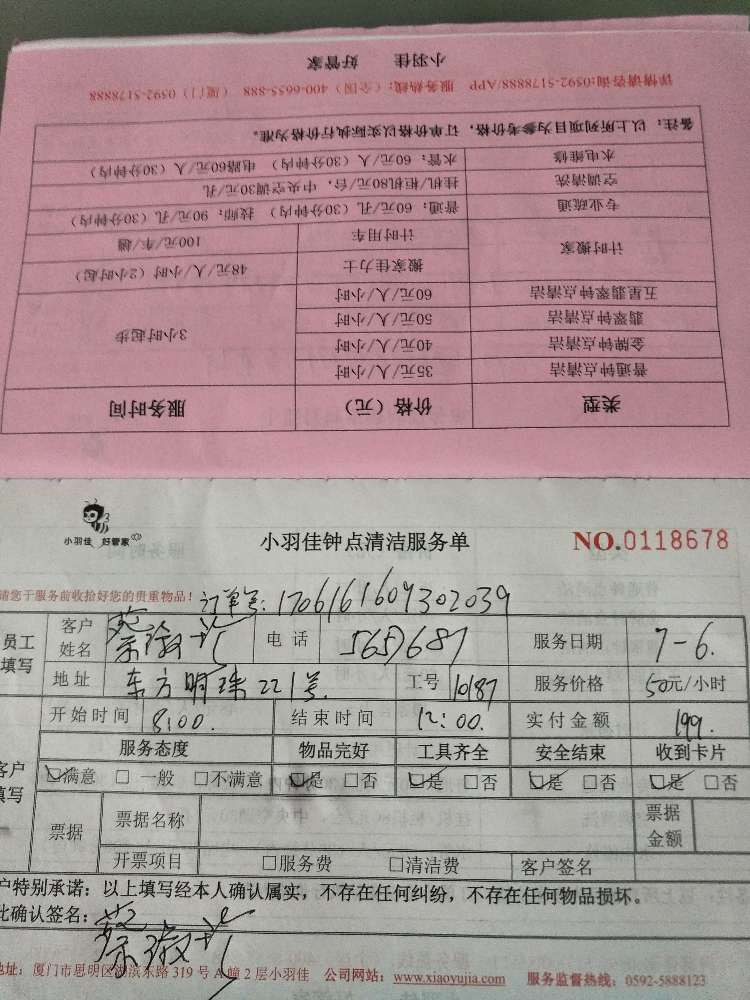 小羽佳 好管家
详情请咨询:0592-5178888/APP 服务热线：(全国) 400-6655-888 (厦门) 0592-5178888
备注：以上所列项目为参考价格，订单价格以实际执行价格为准。
水电维修 水管：60元/人（30分钟内） 电路60元/人（30分钟内）
空调清洗 挂机/柜机80元/台，中央空调30元/孔
专业疏通 普通：60元/孔（30分钟内） 技师：90元/孔（30分钟内）
计时搬家 计时用车 100元/车/趟
搬家佳力士 48元/人/小时（2小时起）
五星翡翠钟点清洁 60元/人/小时
翡翠钟点清洁 50元/人/小时 3小时起步
金牌钟点清洁 40元/人/小时
普通钟点清洁 35元/人/小时
类型 价格（元） 服务时间
小羽佳 好管家
小羽佳钟点清洁服务单 NO.0118678
请您于服务前收拾好您的贵重物品！ 订单号: 1706161609302039
员工填写 客户姓名 蔡 电话 5657687 服务日期 7-6.
地址 东方明珠221号 工号 10187 服务价格 50元/小时
开始时间 8:00. 结束时间 12:00. 实付金额 199.
服务态度 物品完好 工具齐全 安全结束 收到卡片
客户填写 ☑满意 □一般 □不满意 ☑是 □否 ☑是 □否 ☑是 □否 ☑是 □否
票据 票据名称 票据金额
开票项目 □服务费 □清洁费 客户签名
户特别承诺：以上填写经本人确认属实，不存在任何纠纷，不存在任何物品损坏。
此确认签名: 蔡
地址：厦门市思明区湖滨东路319号A幢2层小羽佳 公司网站：www.xiaoyujia.com 服务监督热线：0592-5888123